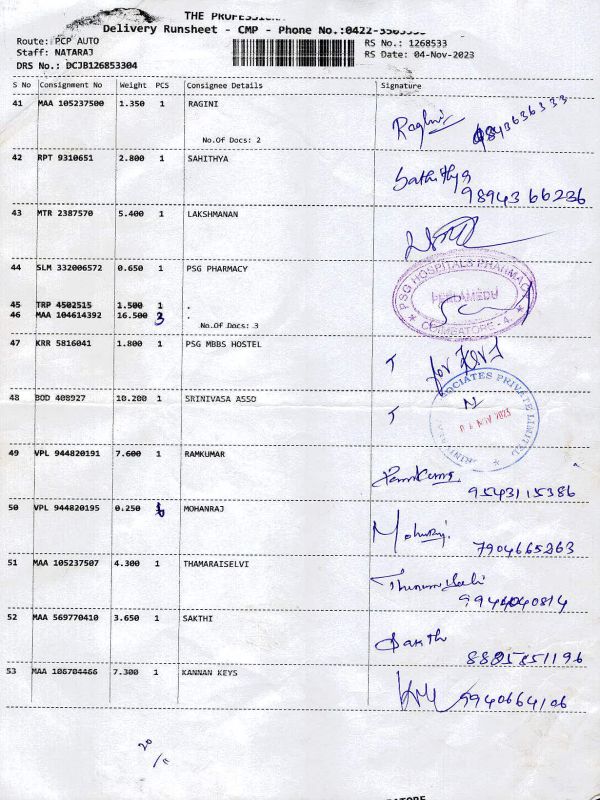 THE PROFESSIONAL
Delivery Runsheet - CMP - Phone No.:0422-
Route: PCP AUTO
RS No.: 1268533
Staff: NATARAJ
RS Date: 04-Nov-2023
DRS No.: DCJB126853304
S No Consignment No Weight PCS Consignee Details Signature
41 MAA 105237500 1.350 1 RAGINI
No.Of Docs: 2
Ragini 9843636333
42 RPT 9310651 2.800 1 SAHITHYA
Sahithya
98943 66236
43 MTR 2387570 5.400 1 LAKSHMANAN
44 SLM 332006572 0.650 1 PSG PHARMACY
PSG HOSPITALS PHARMACY
PEELAMEDU
COIMBATORE - 4.
45 TRP 4502515 1.500 1 .
46 MAA 104614392 16.500 3 .
No.Of Docs: 3
47 KRR 5816041 1.800 1 PSG MBBS HOSTEL
48 BOD 408927 10.200 1 SRINIVASA ASSO
ASSOCIATES PRIVATE LIMITED
49 VPL 944820191 7.600 1 RAMKUMAR
Ramkumar
95431 15386
50 VPL 944820195 0.250 MOHANRAJ
Mohanraj
7904665263
51 MAA 105237507 4.300 1 THAMARAISELVI
9944040814
52 MAA 569770410 3.650 1 SAKTHI
Sakthi
8825851196
53 MAA 106704466 7.300 1 KANNAN KEYS
9940664106
20
/11